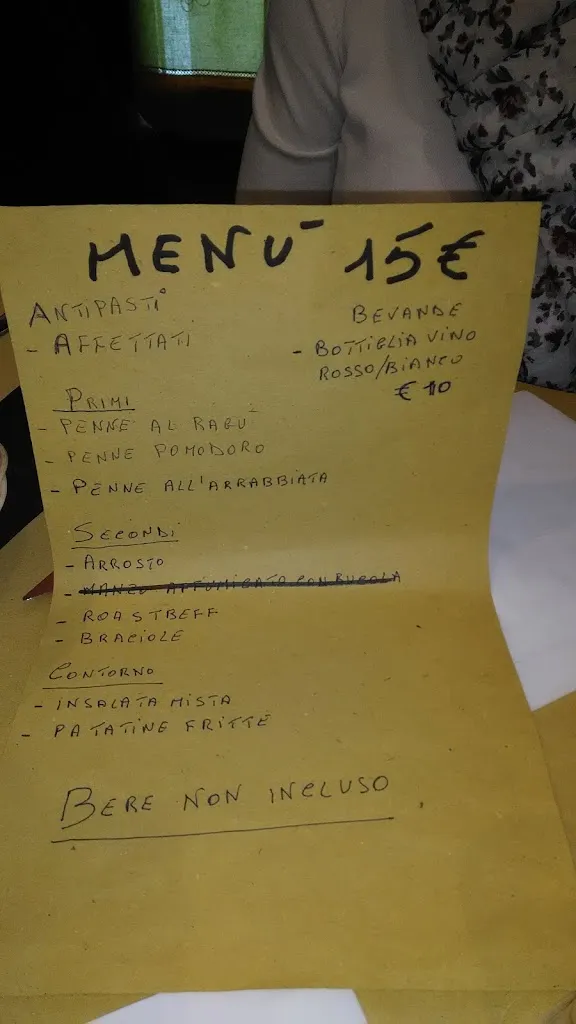 MENÙ 15€
ANTIPASTI
- AFFETTATI
BEVANDE
- BOTTIGLIA VINO
ROSSO/BIANCO
€ 10
PRIMI
- PENNE AL RAGÙ
- PENNE POMODORO
- PENNE ALL'ARRABBIATA
SECONDI
- ARROSTO
- MANZO AFFUMICATO CON RUCOLA
- ROASTBEFF
- BRACIOLE
CONTORNO
- INSALATA MISTA
- PATATINE FRITTE
BERE NON INCLUSO